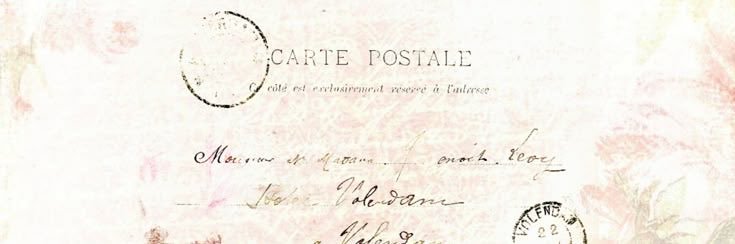 CARTE POSTALE
Ce côté est exclusivement réservé à l'adresse
Monsieur et Madame
Levy
Hotel Volendam
à Volendam
VOLENDAM
22